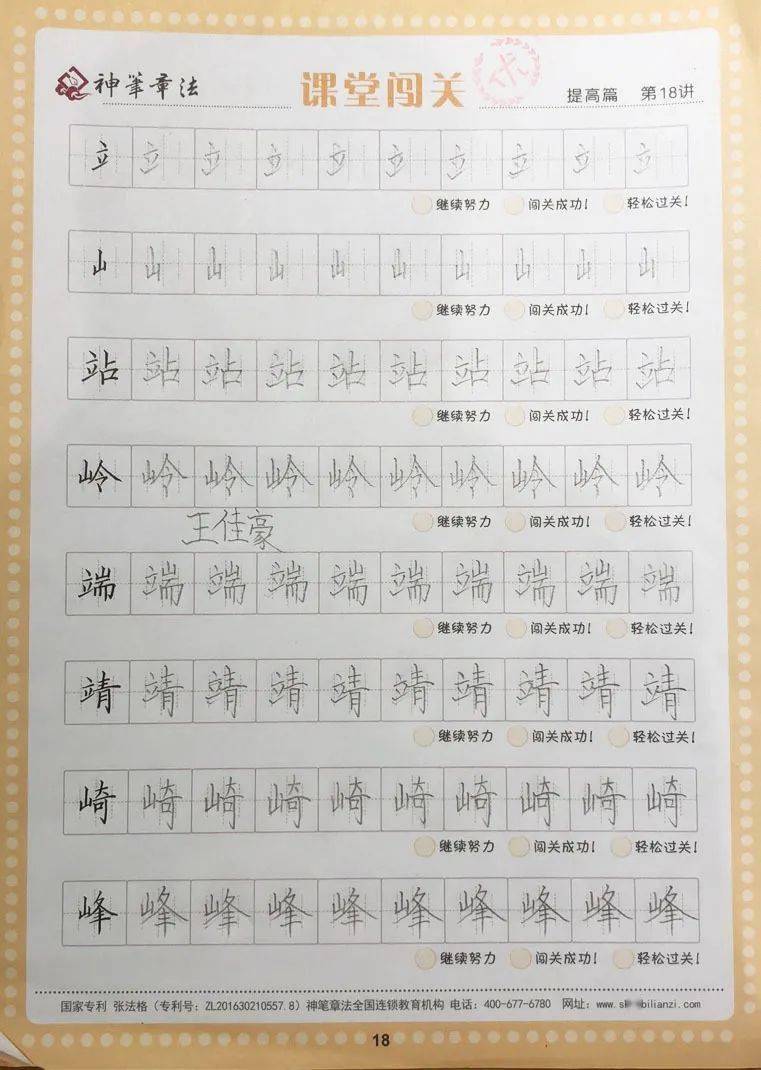 神笔章法 课堂闯关 提高篇 第18讲
立 立 立 立 立 立 立 立 立 立
继续努力 闯关成功！ 轻松过关！
山 山 山 山 山 山 山 山 山 山
继续努力 闯关成功！ 轻松过关！
站 站 站 站 站 站 站 站 站 站
继续努力 闯关成功！ 轻松过关！
岭 岭 岭 岭 岭 岭 岭 岭 岭 岭
王佳豪 继续努力 闯关成功！ 轻松过关！
端 端 端 端 端 端 端 端 端 端
继续努力 闯关成功！ 轻松过关！
靖 靖 靖 靖 靖 靖 靖 靖 靖 靖
继续努力 闯关成功！ 轻松过关！
崎 崎 崎 崎 崎 崎 崎 崎 崎 崎
继续努力 闯关成功！ 轻松过关！
峰 峰 峰 峰 峰 峰 峰 峰 峰 峰
继续努力 闯关成功！ 轻松过关！
国家专利 张法格（专利号：ZL201630210557.8）神笔章法全国连锁教育机构 电话：400-677-6780 网址：
18